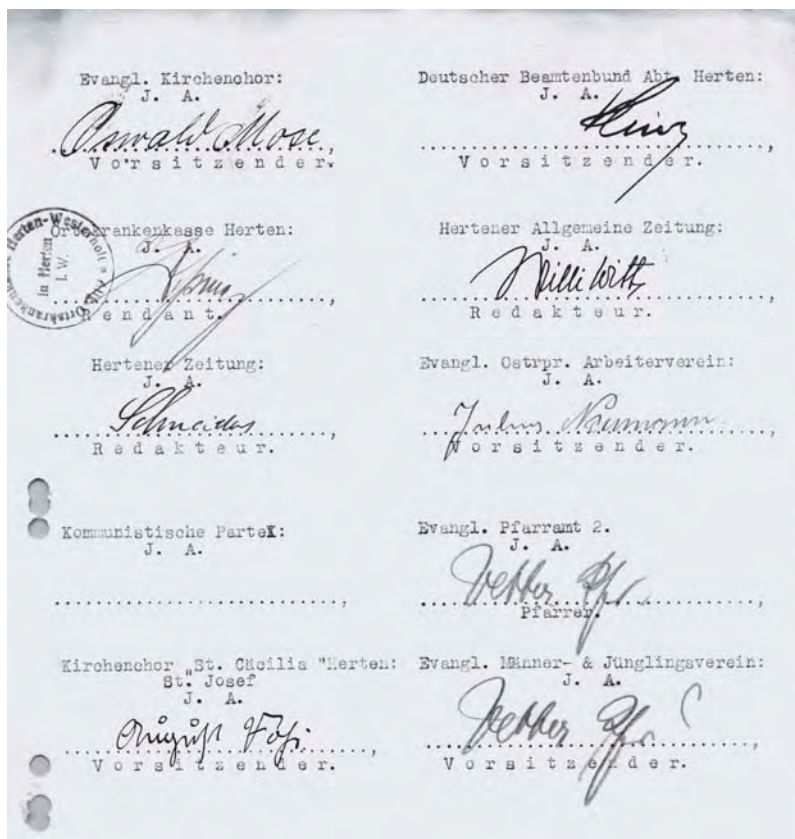 Evangl. Kirchenchor:
J. A.
Oswald Mose
Vorsitzender.
Ortskrankenkasse Herten:
J. A.
Rendant.
Herten-Westerholt
in Herten
i. W.
Hertener Zeitung:
J. A.
Schneider
Redakteur.
Kommunistische Partei:
J. A.
Kirchenchor "St. Cäcilia "Herten:
St. Josef
J. A.
August
Vorsitzender.
Deutscher Beamtenbund Abt. Herten:
J. A.
Vorsitzender.
Hertener Allgemeine Zeitung:
J. A.
Willi Witt
Redakteur.
Evangl. Ostrpr. Arbeiterverein:
J. A.
Julius Naumann
Vorsitzender.
Evangl. Pfarramt 2.
J. A.
Vetter Pfr.
Pfarrer.
Evangl. Männer- & Jünglingsverein:
J. A.
Vetter Pfr.
Vorsitzender.